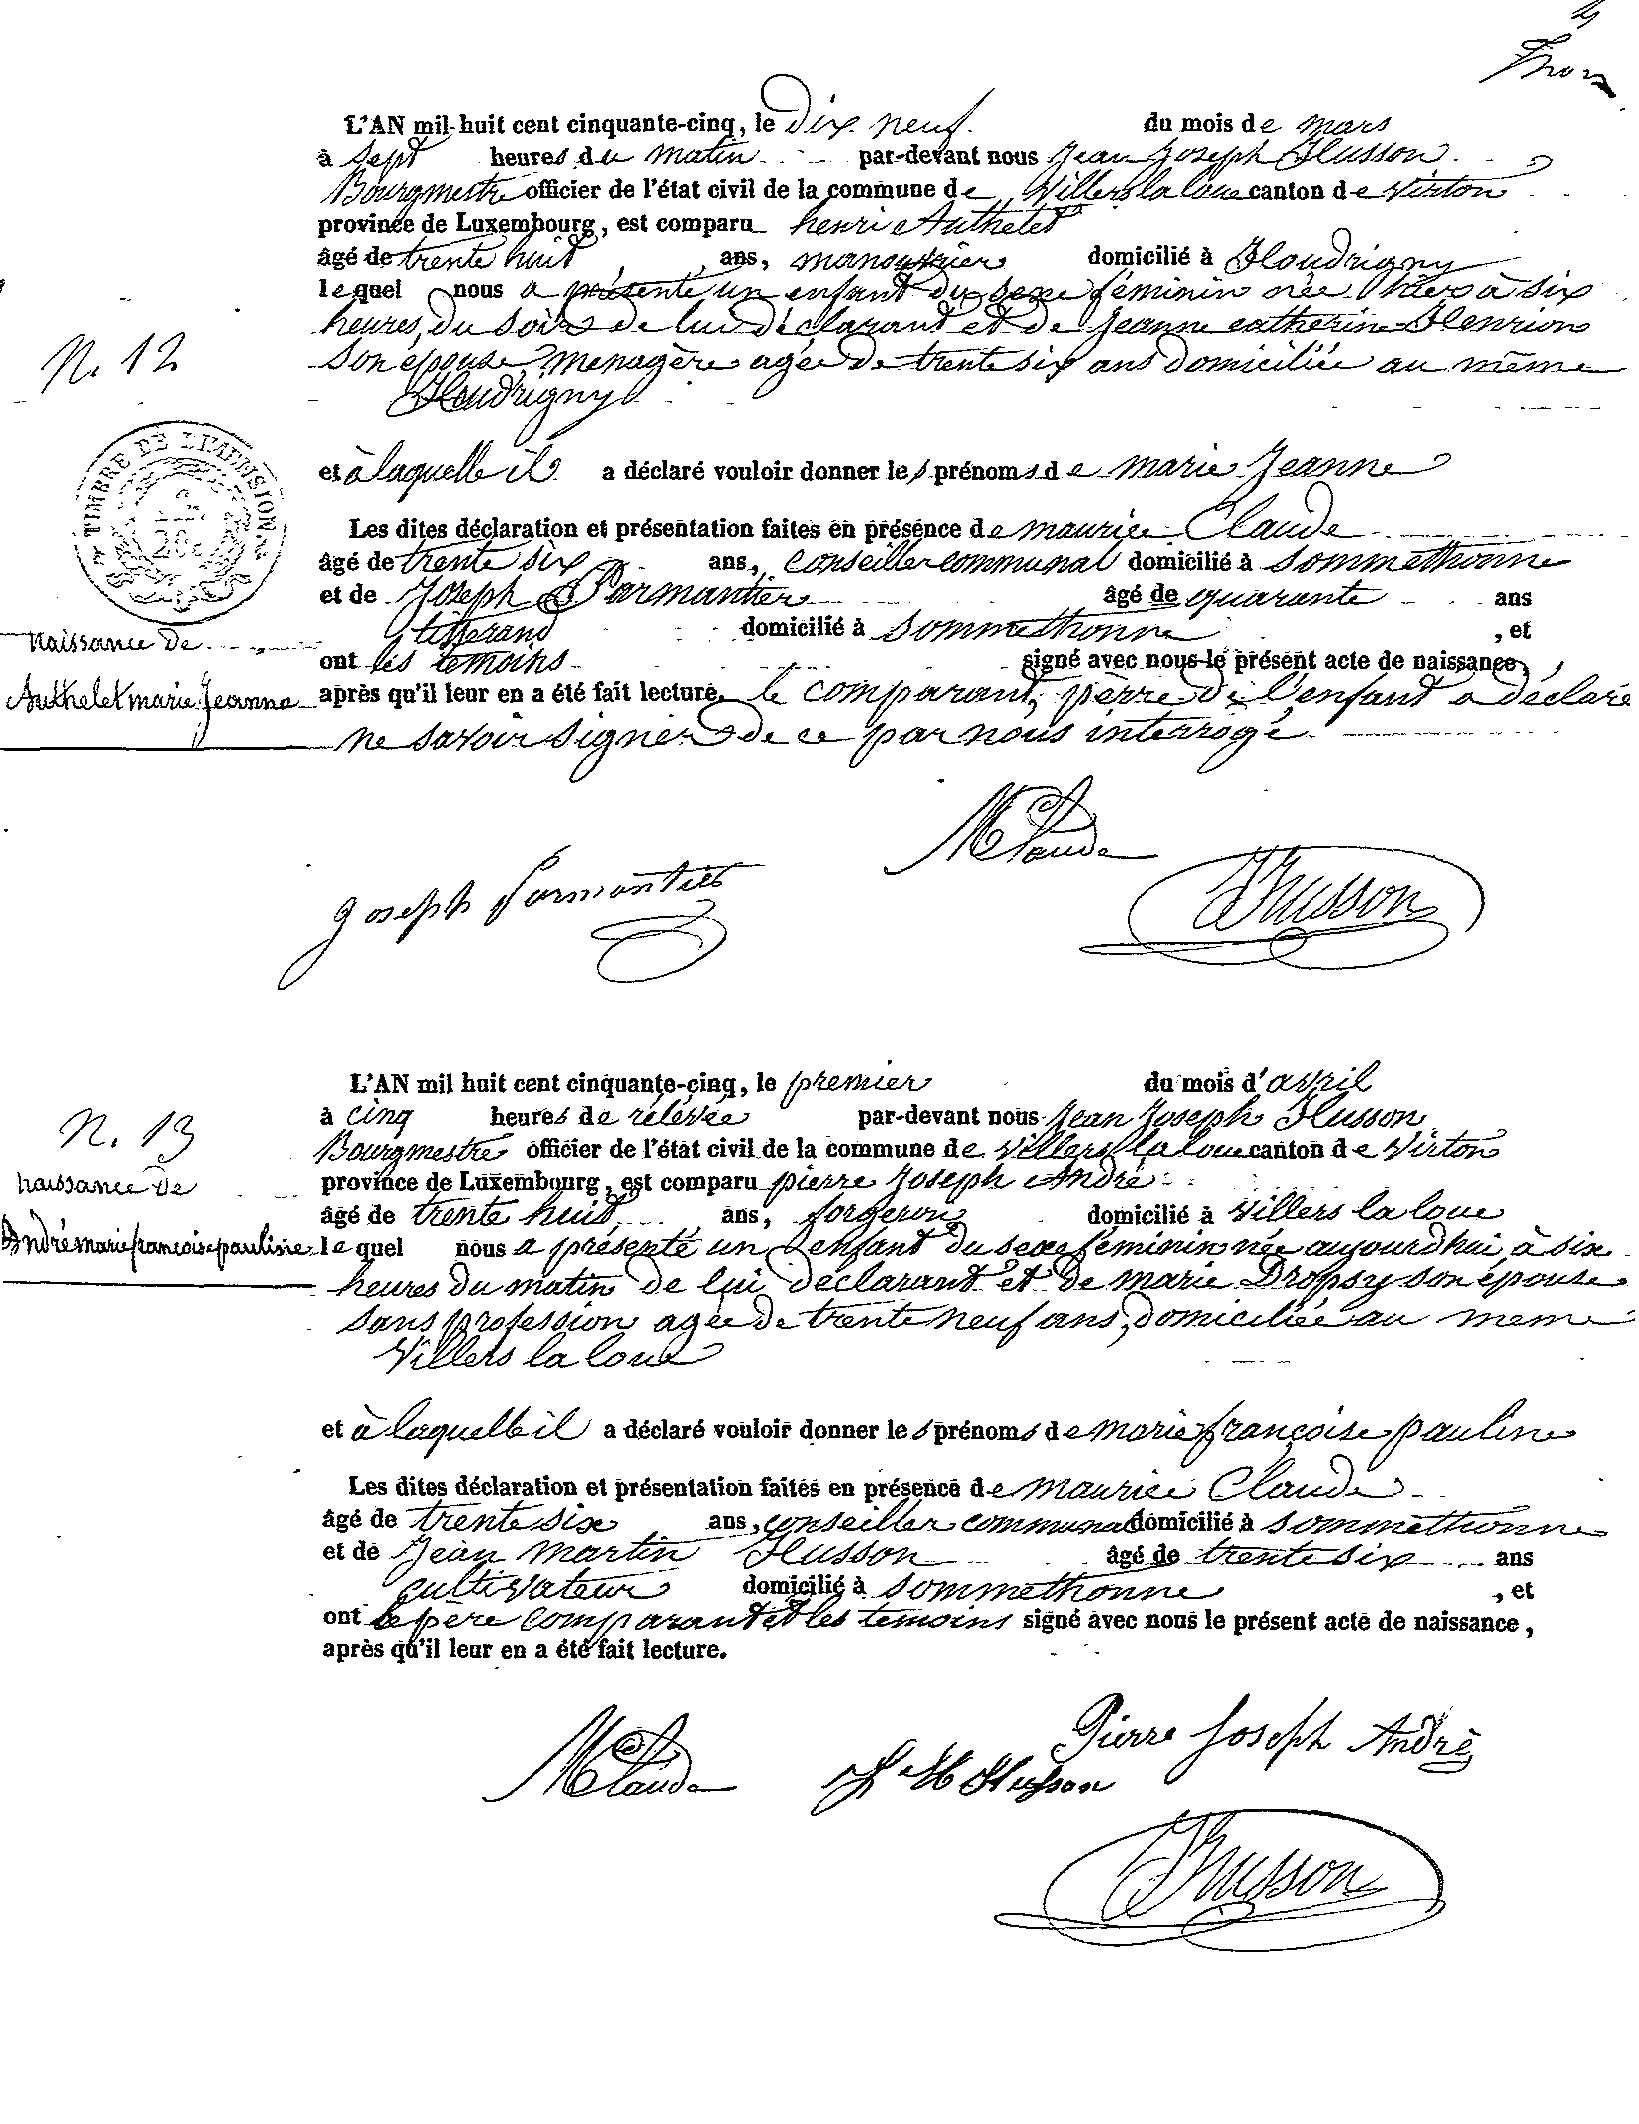 L'AN mil huit cent cinquante-cinq, le dix neuf du mois de mars
à sept heures du matin par-devant nous Jean Joseph Husson
Bourgmestre officier de l'état civil de la commune de Villers la loue canton de Virton
province de Luxembourg, est comparu henri Authelet
âgé de trente huit ans, manouvrier domicilié à Houdrigny
le quel nous a présenté un enfant du sexe féminin née hier à six
heures, du soir de lui déclarant et de Jeanne catherine Henrion
N. 12
son épouse menagère agée de trente six ans domiciliée au même
Houdrigny
TIMBRE DE DIMENSION
et à laquelle il a déclaré vouloir donner les prénoms de marie Jeanne
Les dites déclaration et présentation faites en présence de maurice Claude
âgé de trente six ans, conseiller communal domicilié à sommethonne
et de Joseph Parmantier âgé de quarante ans
domicilié à sommethonne, et
naissance de
ont les temoins signé avec nous le présent acte de naissance,
Authelet marie Jeanne
après qu'il leur en a été fait lecture. le comparant, pèrre de l'enfant a déclaré
ne savoir signer de ce par nous interrogé
MClaude
Joseph Parmantier
Husson
L'AN mil huit cent cinquante-cinq, le premier du mois d'avril
à cinq heures de rélévée par-devant nous Jean Joseph Husson
N. 13
Bourgmestre officier de l'état civil de la commune de Villers la loue canton de Virton
naissance de
province de Luxembourg, est comparu pierre Joseph André
âgé de trente huit ans, forgeron domicilié à Villers la loue
André marie françoise pauline
le quel nous a présenté un enfant du sexe féminin née aujourdhui, à six
heures du matin de lui déclarant et de marie Dropsy son épouse
sans profession agée de trente neuf ans, domiciliée au meme
Villers la loue
et à laquelle il a déclaré vouloir donner les prénoms de marie françoise pauline
Les dites déclaration et présentation faites en présence de maurice Claude
âgé de trente six ans, conseiller communal domicilié à sommethonne
et de Jean martin Husson âgé de trente six ans
cultivateur domicilié à sommethonne, et
ont le père comparant et les temoins signé avec nous le présent acte de naissance,
après qu'il leur en a été fait lecture.
Pierre Joseph André
MClaude
J M Husson
Husson